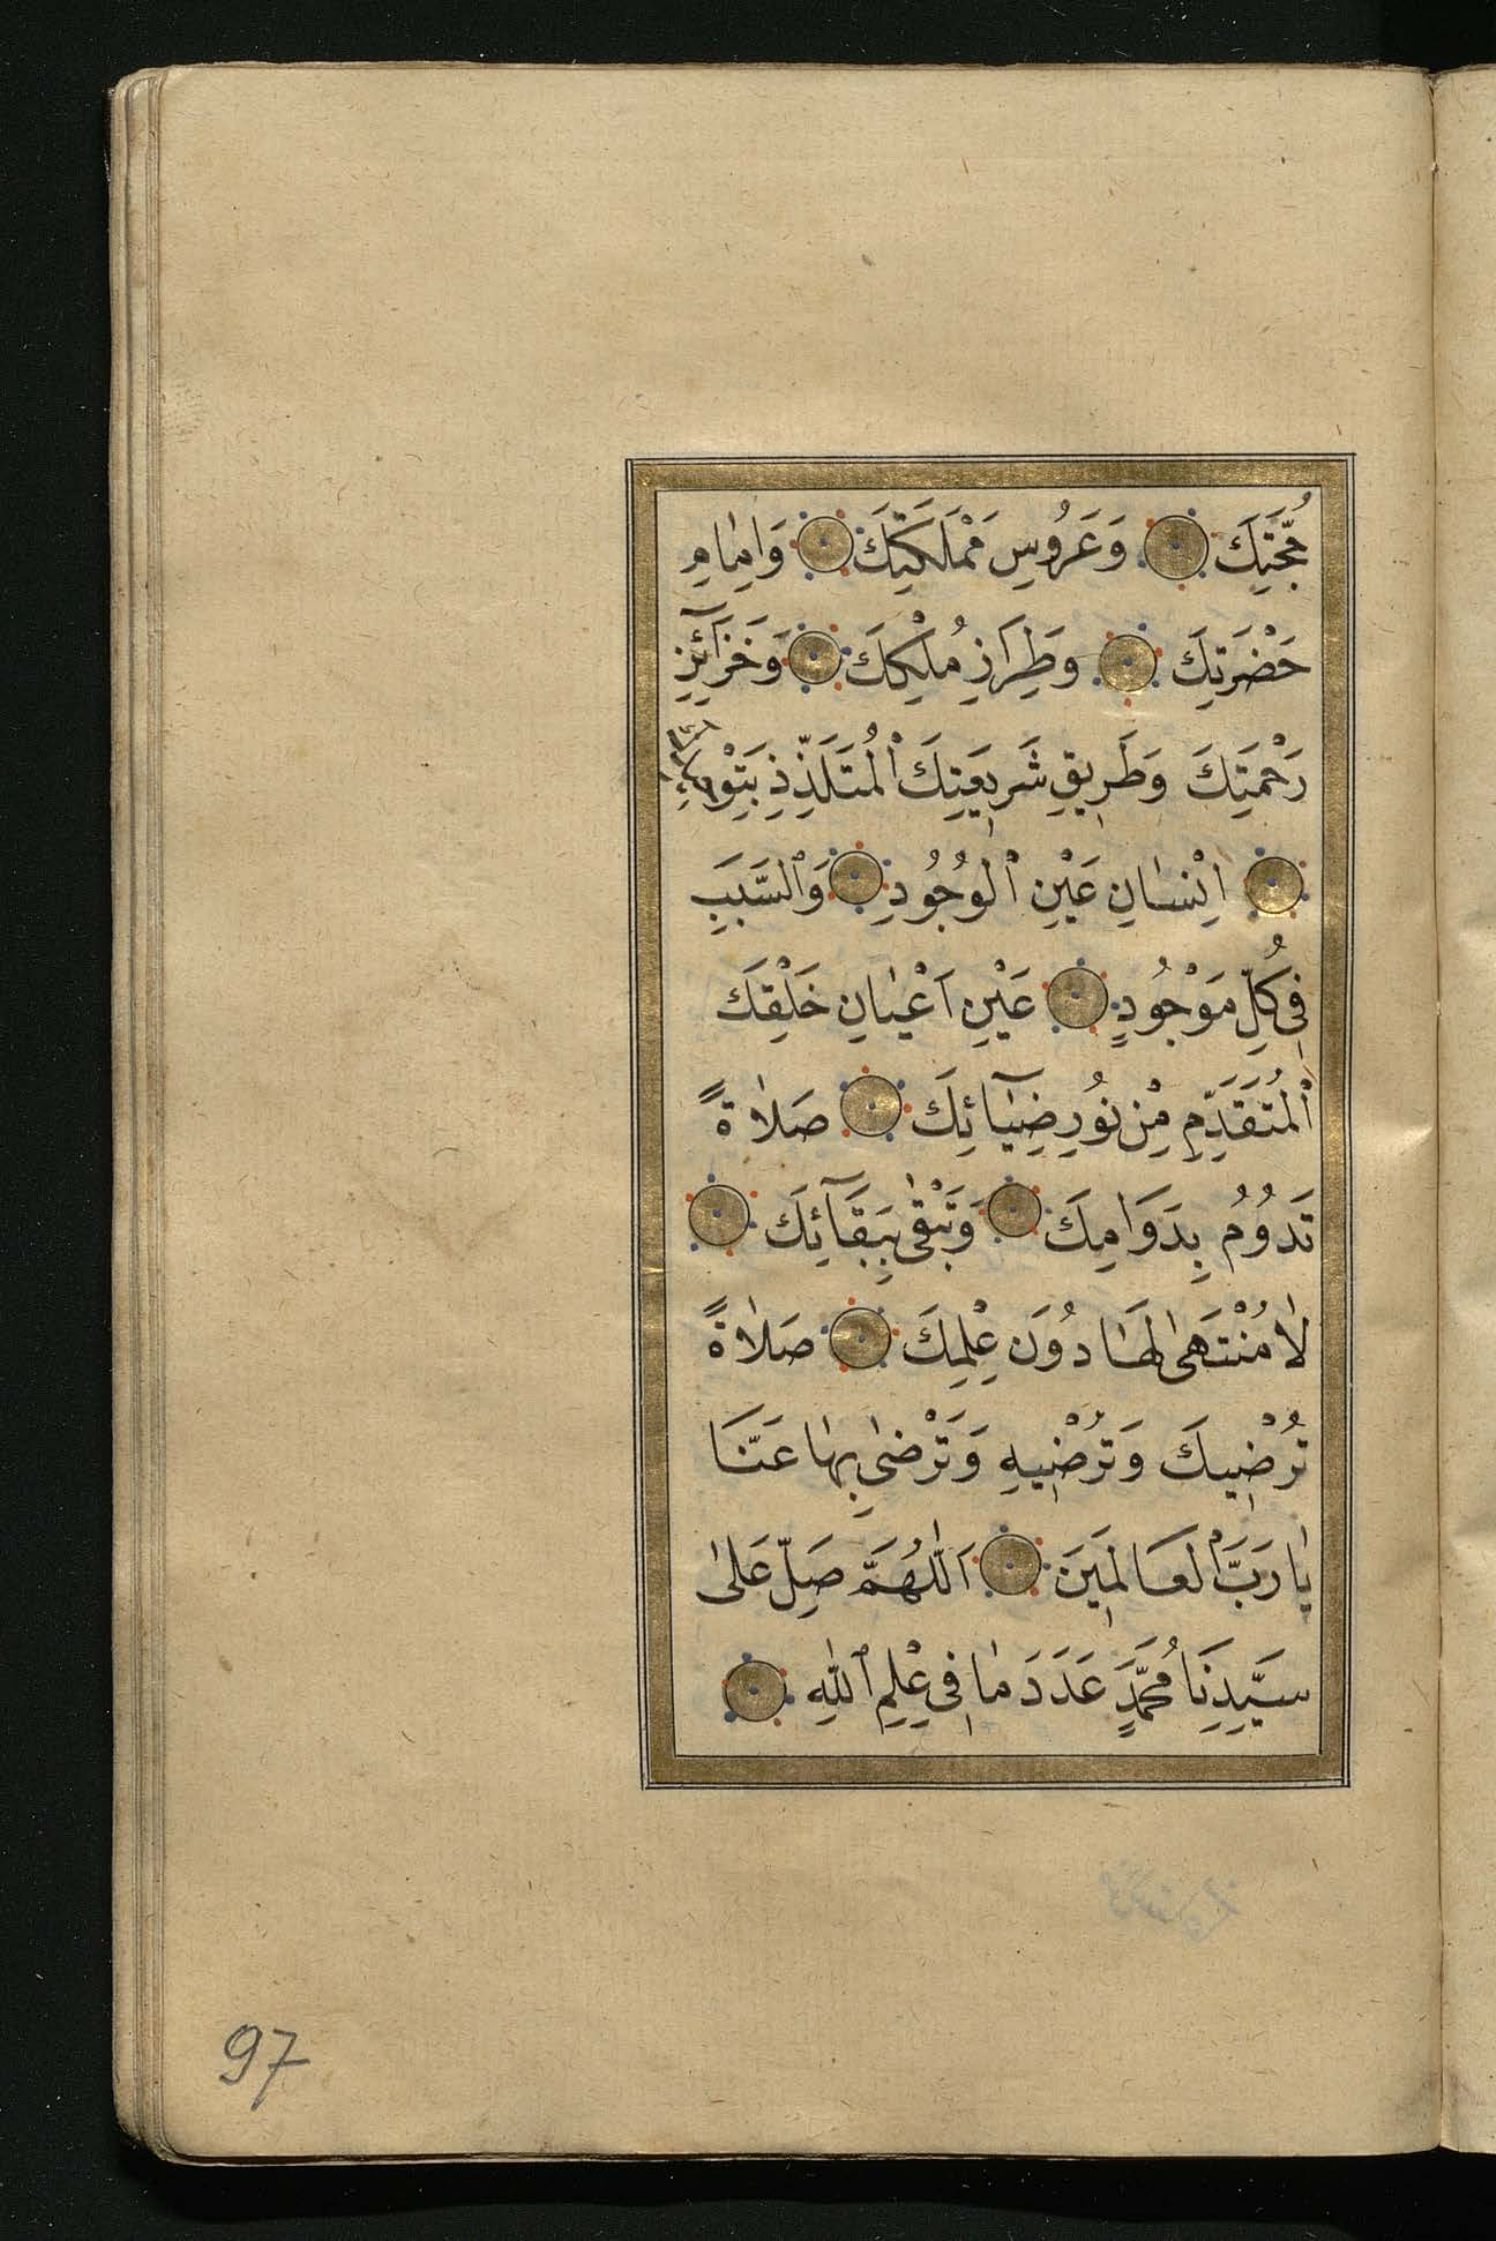 حُجَّتِكَ وَعَرُوسِ مَمْلَكَتِكَ وَاِمَامِ
حَضْرَتِكَ وَطِرَازِ مُلْكِكَ وَخَزَآئِنِ
رَحْمَتِكَ وَطَرِيقِ شَرِيعَتِكَ ٱلْمُتَلَذِّذِ بِتَوْحِيدِكَ
اِنْسَانِ عَيْنِ ٱلْوُجُودِ وَٱلسَّبَبِ
فِى كُلِّ مَوْجُودٍ عَيْنِ اَعْيَانِ خَلْقِكَ
ٱلْمُتَقَدِّمِ مِنْ نُورِ ضِيَآئِكَ صَلَاةً
تَدُومُ بِدَوَامِكَ وَتَبْقٰى بِبَقَآئِكَ
لَا مُنْتَهٰى لَهَا دُونَ عِلْمِكَ صَلَاةً
تُرْضِيكَ وَتُرْضِيهِ وَتَرْضٰى بِهَا عَنَّا
يَا رَبَّ ٱلْعَالَمِينَ اَللّٰهُمَّ صَلِّ عَلٰى
سَيِّدِنَا مُحَمَّدٍ عَدَدَ مَا فِى عِلْمِ ٱللّٰهِ
97